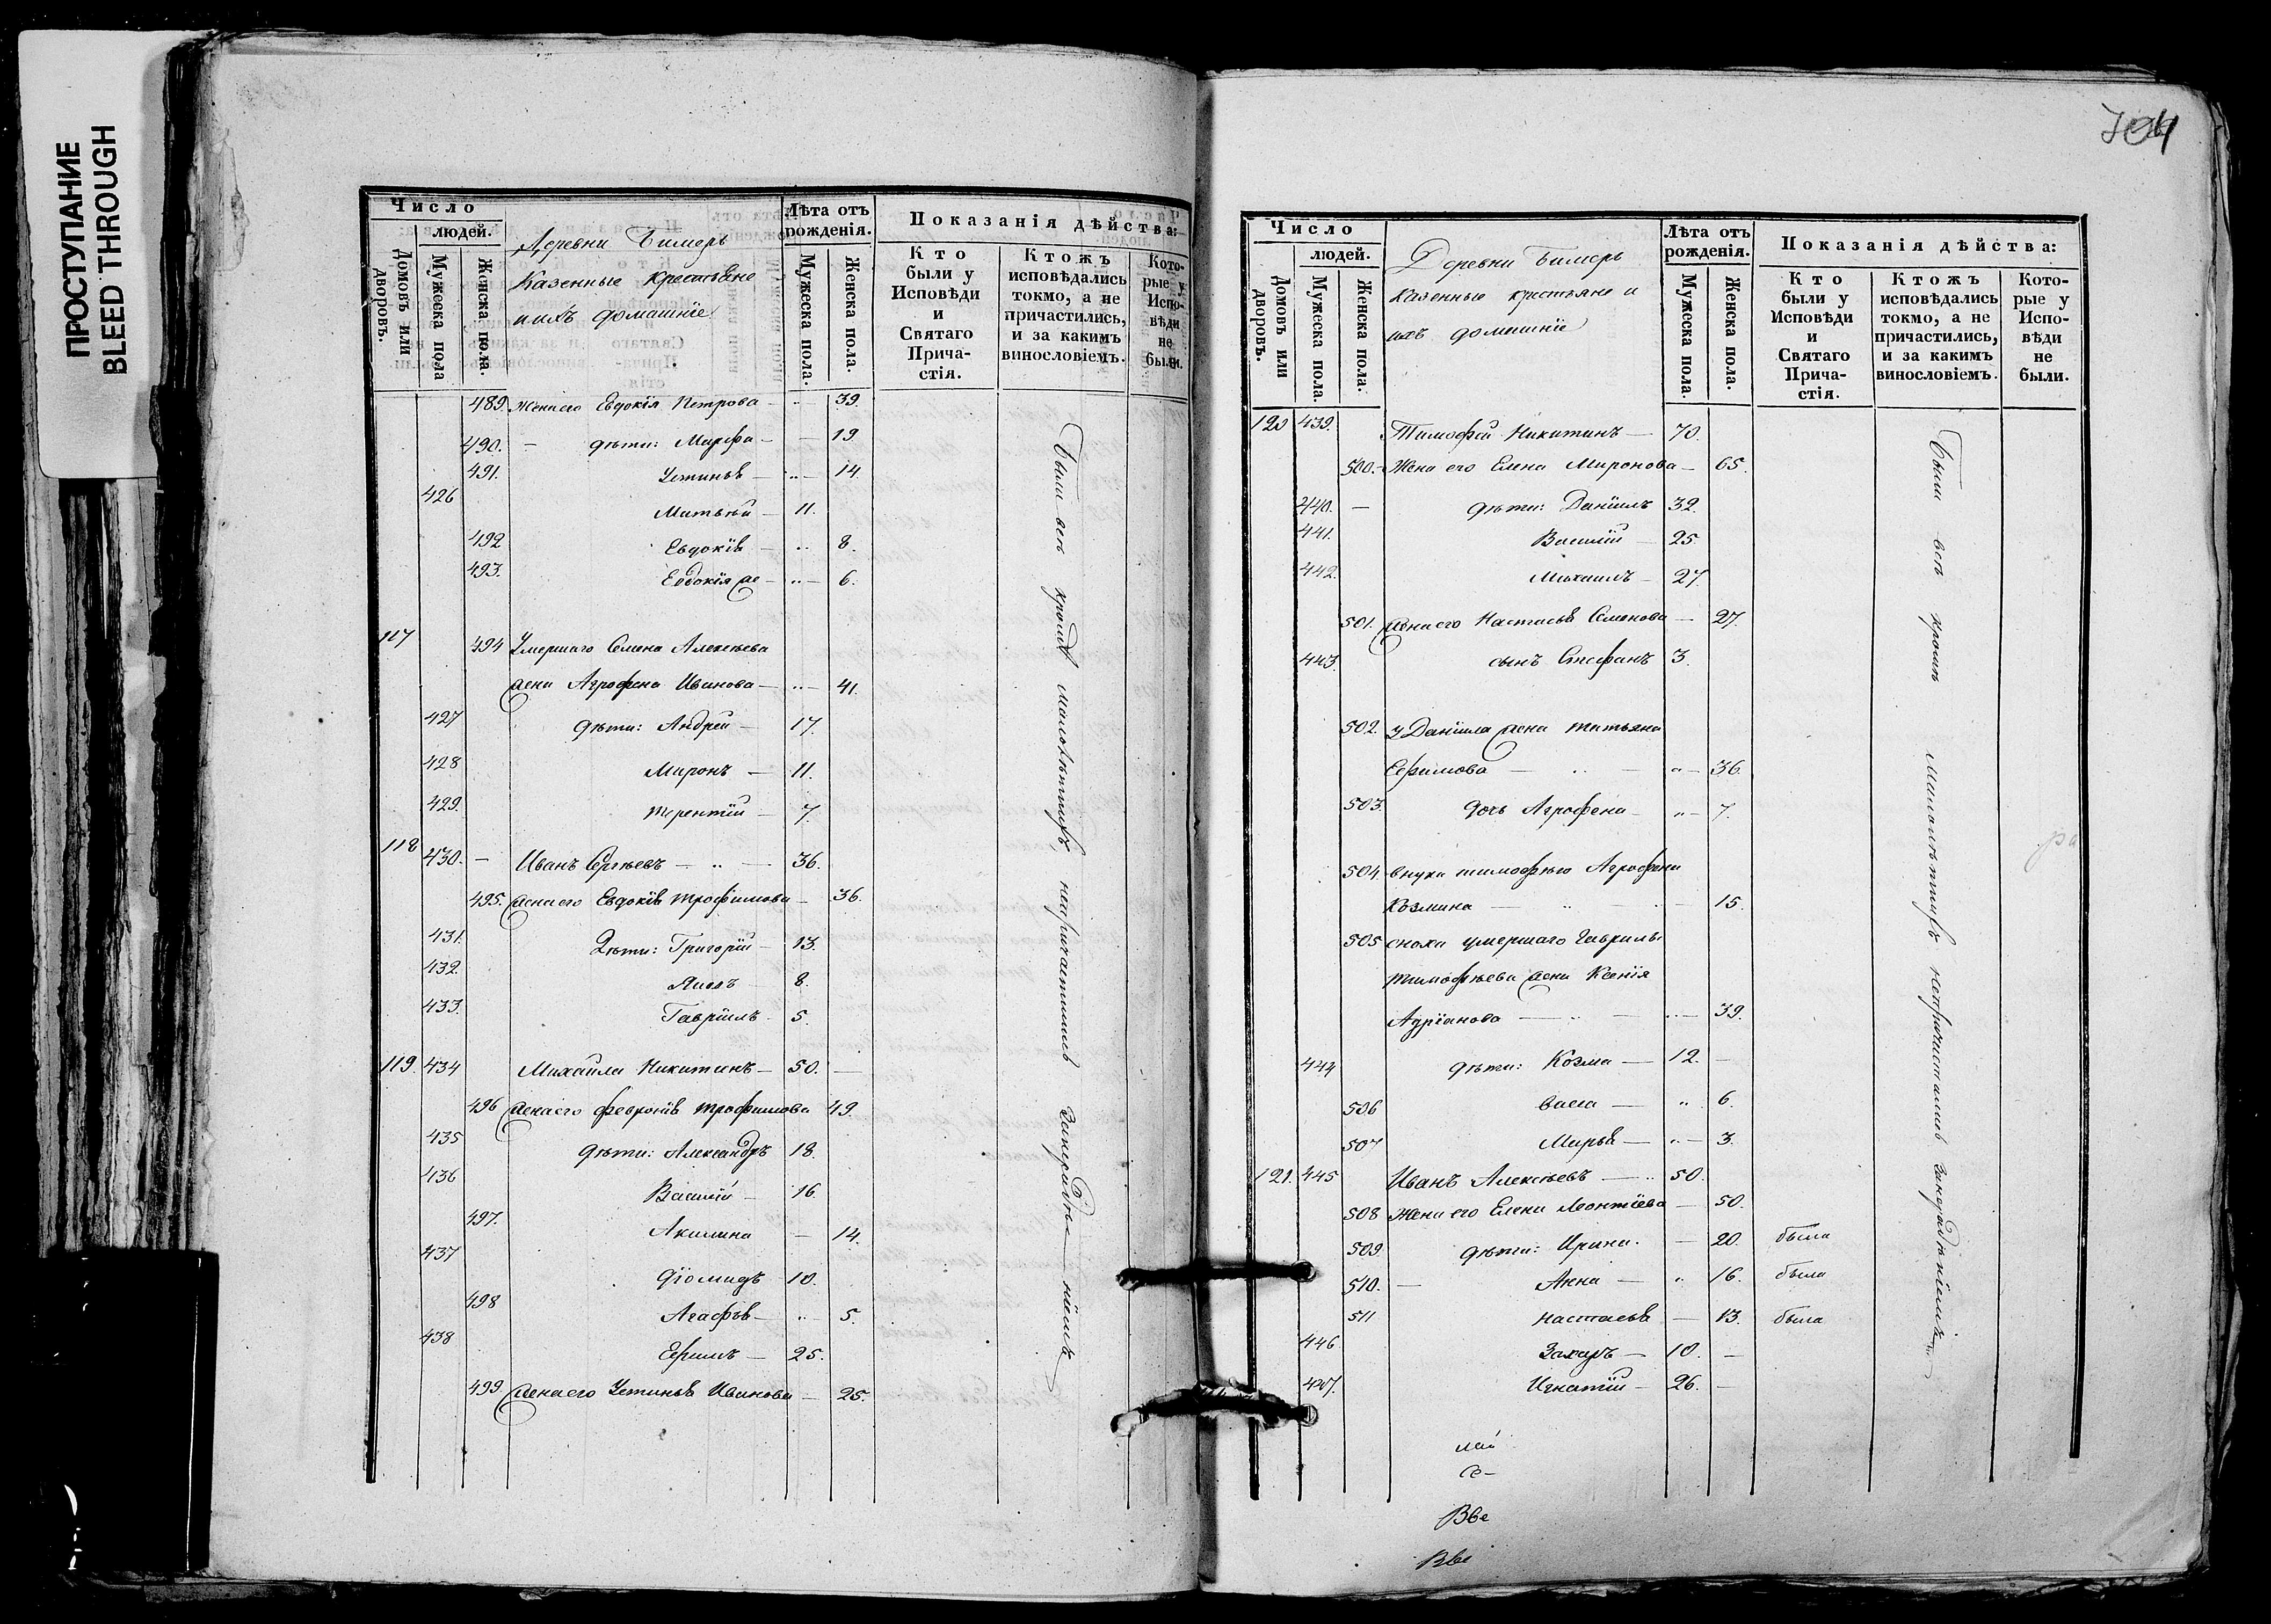 ПРОСТУПАНИЕ
BLEED THROUGH
Число
людей.
Домовъ или дворовъ.
Мужеска пола
Женска пола.
Деревни Бимерь
Казенные крестьяне
и ихъ домашніе
Лѣта отъ рожденія.
Мужеска пола.
Женска пола.
Показанія дѣйства:
Кто были у Исповѣди и Святаго Прича-стія.
Ктожъ исповѣдались токмо, а не причастились, и за какимъ винословіемъ.
Кото-рые у Испо-вѣди не были.
489. Жена его Евдокія Петрова — 39.
490. — дѣти: Марфа — — 19
491. Устинья — 14.
426 Матвѣй — 11.
492 Евдокія — 8.
493. Евдокія же — 6.
117 494 Умершаго Семена Алексѣева
жена Агрофена Иванова — 41.
427 дѣти: Андрей — 17.
428 Миронъ — 11.
429. Терентій — 7.
118 430. — Иванъ Сергѣевъ — 36.
495. жена его Евдокія Трофимова — 36.
431. Дѣти: Григорій — 13.
432. Яковъ 8.
433. Гавріилъ 5.
119. 434 Михайла Никитинъ — 50. —
496 жена его Февронія Трофимова 49.
435 дѣти: Александръ 18.
436 Василій — 16
497. Акилина — 14.
437 Діомидъ 10.
498 Агафья — 5.
438 Ефимъ — 25.
499. жена его Устинья Иванова — 25.
Были всѣ кромѣ малолѣтнихъ непричастились занерадѣ—ніемъ
704
Число
людей.
Домовъ или дворовъ.
Мужеска пола.
Женска пола.
Деревни Бимерь
Казенные крестьяне и
ихъ домашніе
Лѣта отъ рожденія.
Мужеска пола
Женска пола.
Показанія дѣйства:
Кто были у Исповѣди и Святаго Прича-стія.
Ктожъ исповѣдались токмо, а не причастились, и за какимъ винословіемъ.
Кото-рые у Испо-вѣди не были.
120 439. Тимофей Никитинъ — 70.
500. Жена его Елена Миронова — 65.
440. — дѣти: Даніилъ 32.
441. Василій — 25.
442. Михаилъ — 27.
501. жена его Настасья Семенова — 27.
443. сынъ Стефанъ 3.
502. у Даніила жена Татьяна
Ефимова — 36.
503. дочь Агрофена — 7.
504 внука Тимофѣю Агрофена
Козмина — 15.
505 сноха умершаго Гаврилы
Тимофѣева жена Ксенія
Адріанова — 39.
444 дѣти: Козма — 12. —
506 Васса — 6.
507 Марья — 3.
121. 445 Иванъ Алексѣевъ — 50.
508 Жена его Елена Леонтіева — 50.
509 дѣти: Ирина. — 20. была
510. — Анна — 16. была
511 Настасья — 13. была
446 Захаръ — 10. —
447. Игнатій — 26. —
Были всѣ кромѣ малолѣтнихъ непричастились занерадѣніемъ
Вве
Вве